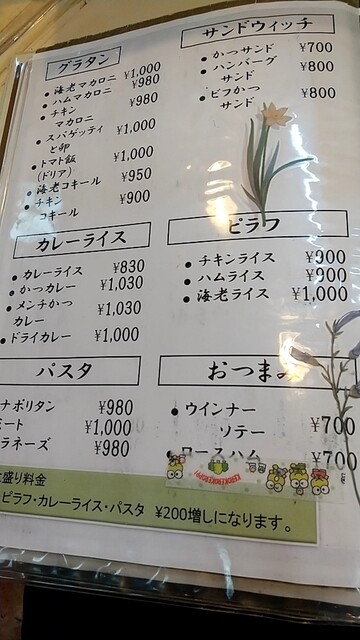 グラタン
●海老マカロニ ¥1,000
●ハムマカロニ ¥980
●チキン
マカロニ ¥980
●スパゲッティ
と卵 ¥1,000
●トマト飯
(ドリア) ¥1,000
●海老コキール ¥950
●チキン
コキール ¥900
カレーライス
●カレーライス ¥830
●かつカレー ¥1,030
●メンチかつ
カレー ¥1,030
●ドライカレー ¥1,000
パスタ
ナポリタン ¥980
ート ¥1,000
ラネーズ ¥980
サンドウィッチ
●かつサンド ¥700
●ハンバーグ
サンド ¥800
●ビフかつ
サンド ¥800
ピラフ
●チキンライス ¥900
●ハムライス ¥900
●海老ライス ¥1,000
おつまみ
●ウインナー
ソテー ¥700
●ロースハム ¥700
盛り料金
ピラフ・カレーライス・パスタ ¥200増しになります。